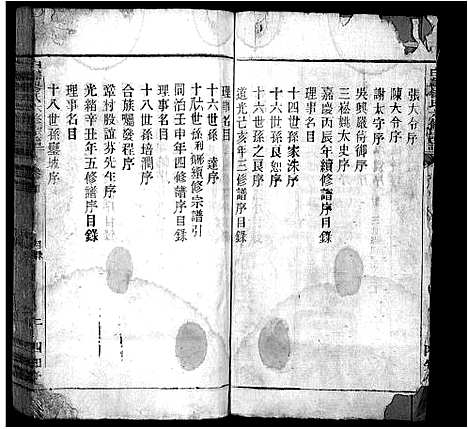 張大令序
陳大令序
謝太守序
吳興嚴侍御序
三崧姚太史序
嘉慶丙辰年續修譜序目錄
理事名目
十四世孫家洙序
十六世孫良恕序
十六世孫之良序
道光己亥年三修譜序目錄
理事名目
十六世孫 達序
十六世孫利 續修宗譜引
同治壬申年四修譜序目錄
理事名目
十八世孫培潤序
合族囑發程序
鄰村殷誼芬先生序
光緒辛丑年五修譜序目錄
理事名目
十八世孫 坡序